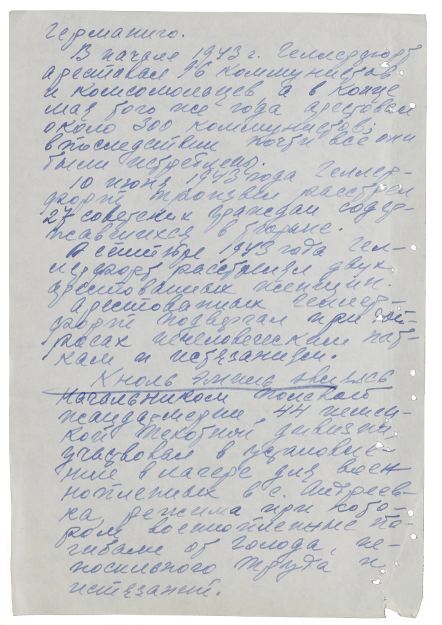 Германию.
В начале 1943 г. Геллерфорт
арестовал 96 коммунистов
и комсомольцев а в конце
мая того же года арестовал
около 300 коммунистов;
впоследствии почти все они
были истреблены.
10 июня 1943 года Геллер-
форт произвел расстрел
27 советских граждан содер-
жавшихся в
В сентябре 1943 года Гел-
лерфорт расстрелял двух
арестованных женщин.
Арестованных Геллер-
форт подвергал при доп-
росах нечеловеческим пыт-
кам и истязаниям.
Кноль Эмиль являясь
начальником полевой
жандармерии 44 немец-
кой пехотной дивизии,
участвовал в установле-
ние в лагере для воен-
нопленных в с. Андреев-
ка, режима при кото-
ром военнопленные по-
гибали от голода, не-
посильного труда и
истязаний.